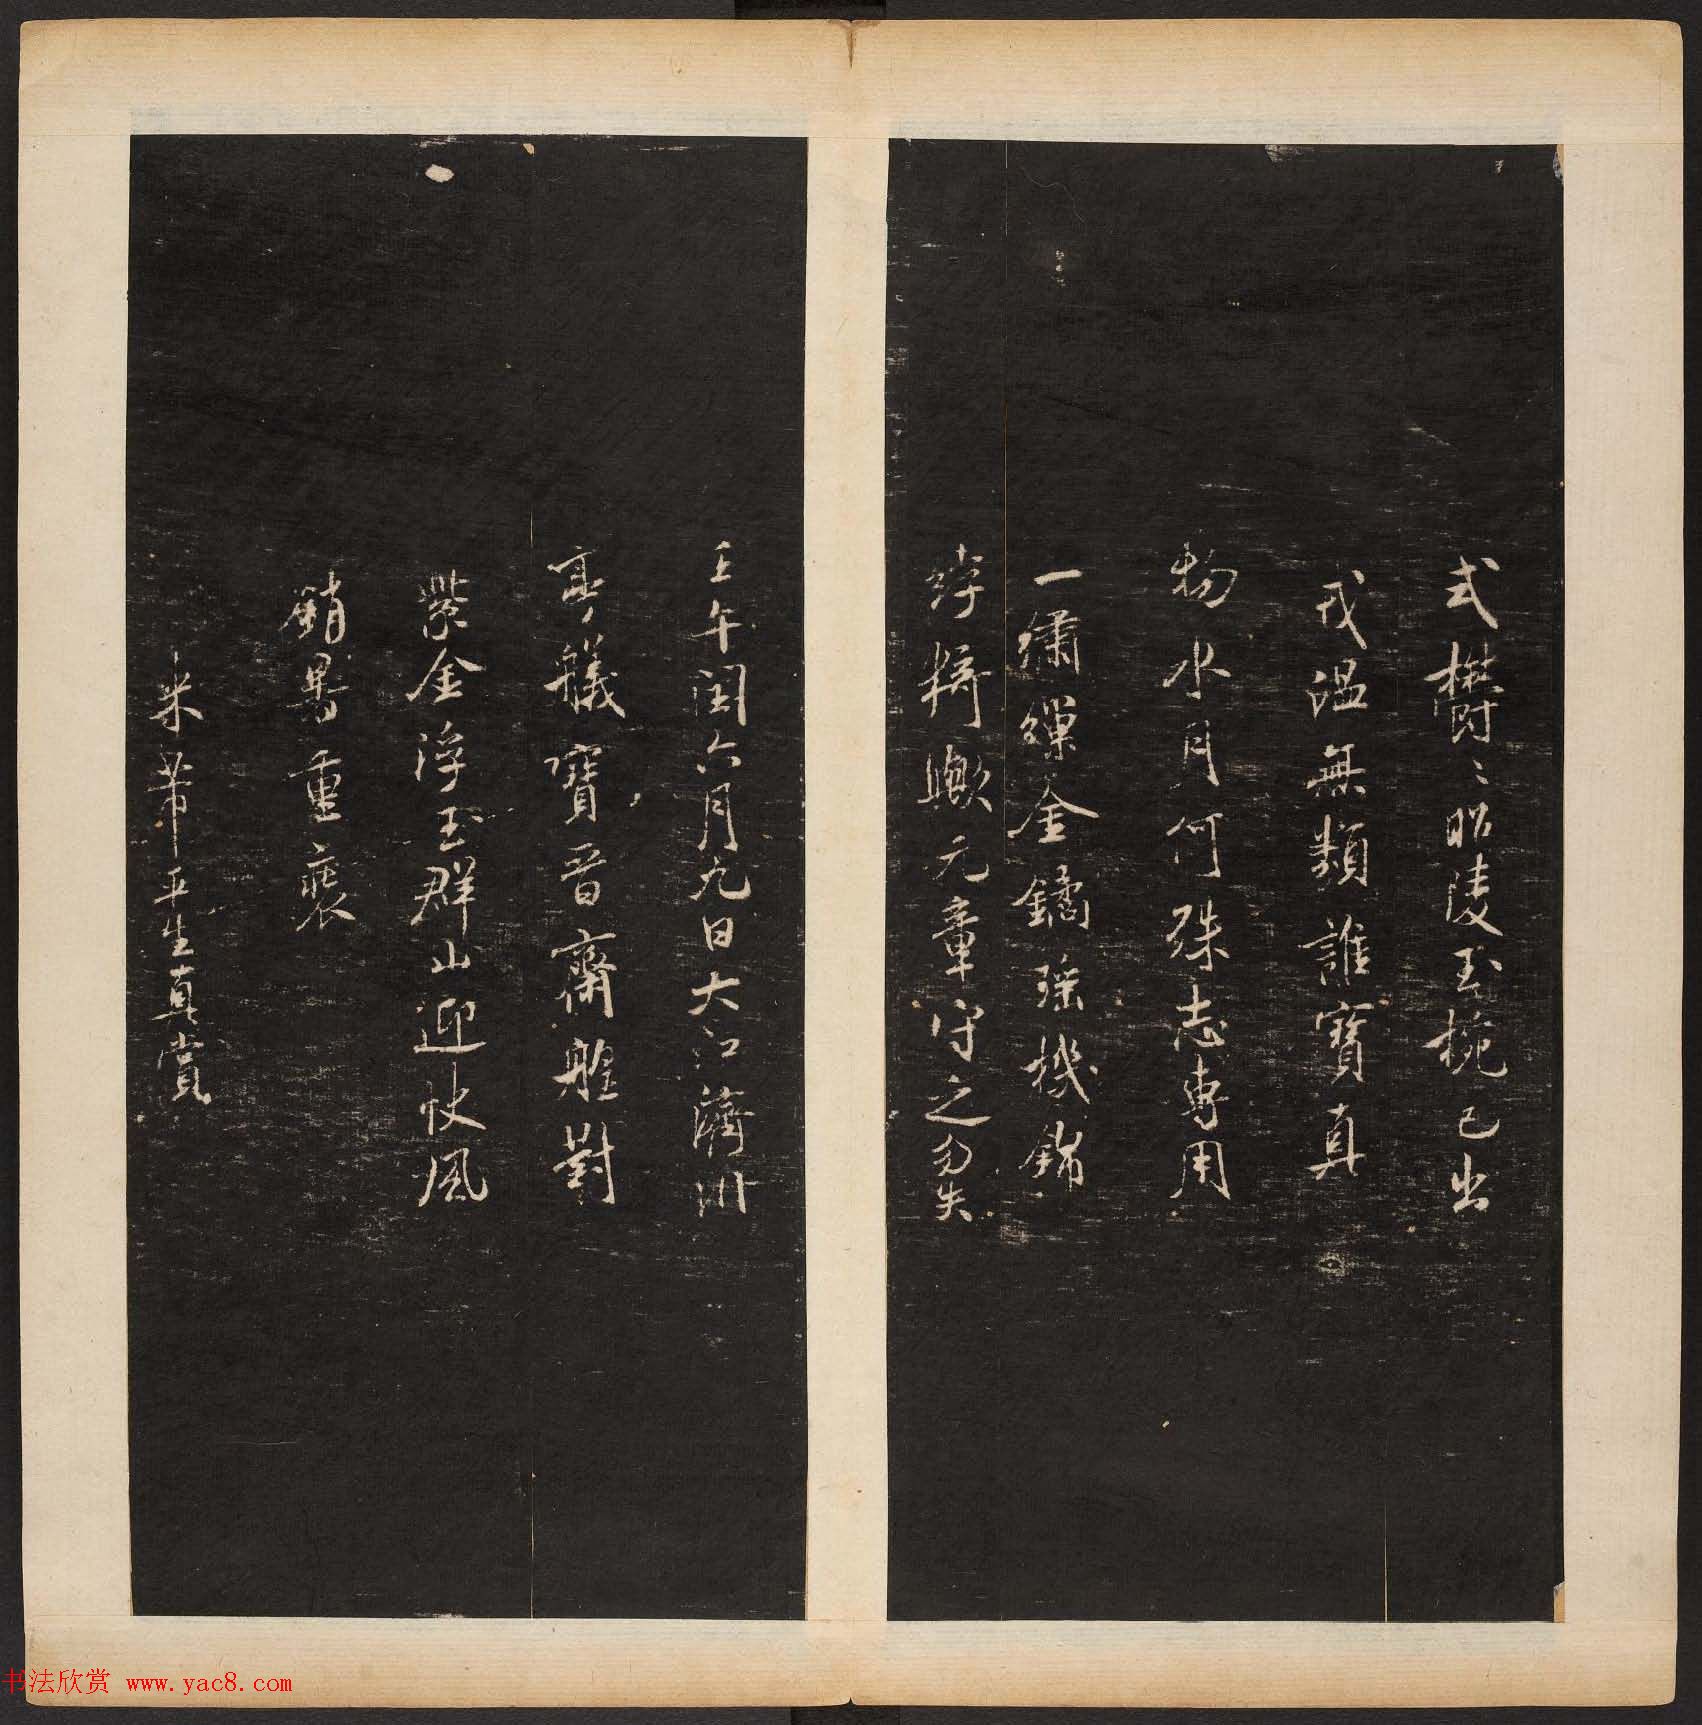 式欝〻昭陵玉椀已出
戎温無類誰寶真
物水月何殊志專用
一繡繅金鐍瑶機錦
綍猗歟元章守之勿失
壬午閏六月九日大江濟川
亭艤寶晉齋艎對
紫金浮玉群山迎快風
銷暑重裝
米芾平生真賞
书法欣赏 www.yac8.com